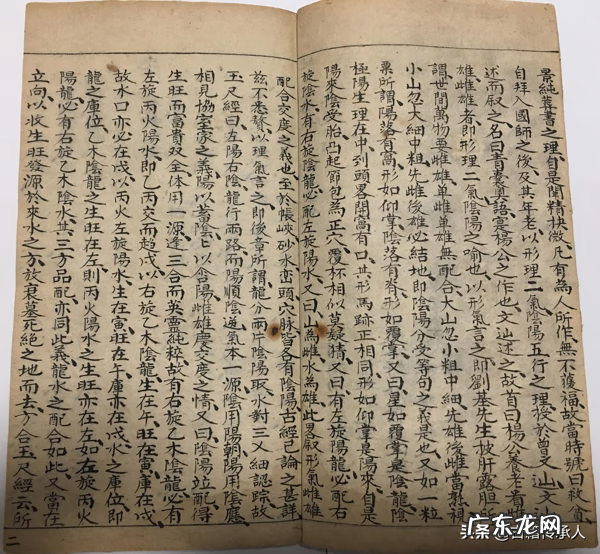 景純葬書之理自是闡精抉微凡有為人所作無不獲福故當時號曰救貧
自拜入國師之後及其年老以形理二氣陰陽五行之理授於曾文辿文辿
述而叙之名曰青囊奧語寔楊公之作也文辿述之故首曰楊公養老看雌
雄雌雄者即形理二氣陰陽之喻也以形氣言之即劉基先生披肝露胆
謂世間萬物要雌雄單雌單雄無配合大山忽小粗中細先雄後雌當熟視
小山忽大細中粗先雌後雄必結地即陰陽分受等句之義是也又如一粒
粟所謂陽落有窩形如仰掌陰落有脊形如覆掌又曰星如覆掌是陰龍陰
極陽生理在中到頭畧開窩有口其形馬跡正相同形如仰掌是陽來自是
陽來陰受胎凸起節包為正穴覆杯相似莫疑猜又曰有左旋陽龍必配右
旋陰水有右旋陰龍必配左旋陽水又曰山為雌水為雄此畧叙形氣雌雄
配合交度之義也至於帳峽砂水巒頭穴脉皆各有陰陽古經已論之甚詳
茲不悉贅以理氣言之即後章所謂龍分兩片陰陽取水對三义細認踪故
玉尺經曰左陽右陰龍行兩路而陽順陰逆氣本一源陰用陽朝陽用陰應
相見協室家之義陽以蓄陰陰以含陽雌雄慶交度之情又曰陰陽竝配得
生旺而富貴双全体用一源逢三合而英靈純粹故有右旋乙木陰龍必有
左旋丙火陽水即乙丙交而趋戌以右旋乙木陰龍生在午旺在寅庫在戌
故水口亦必在戌以丙火左旋陽水生在寅旺在午庫亦在戌水之庫位即
龍之庫位乙木陰龍之生旺在左則丙火陽水之生旺亦在左如左旋丙火
陽龍必有右旋乙木陰水其三方品配亦同此義龍水之配合如此又當在
立向以收生旺發源於來水之方放衰墓死絕之地而去方合玉尺經云所
二
头条@古籍传承人
广东龙网